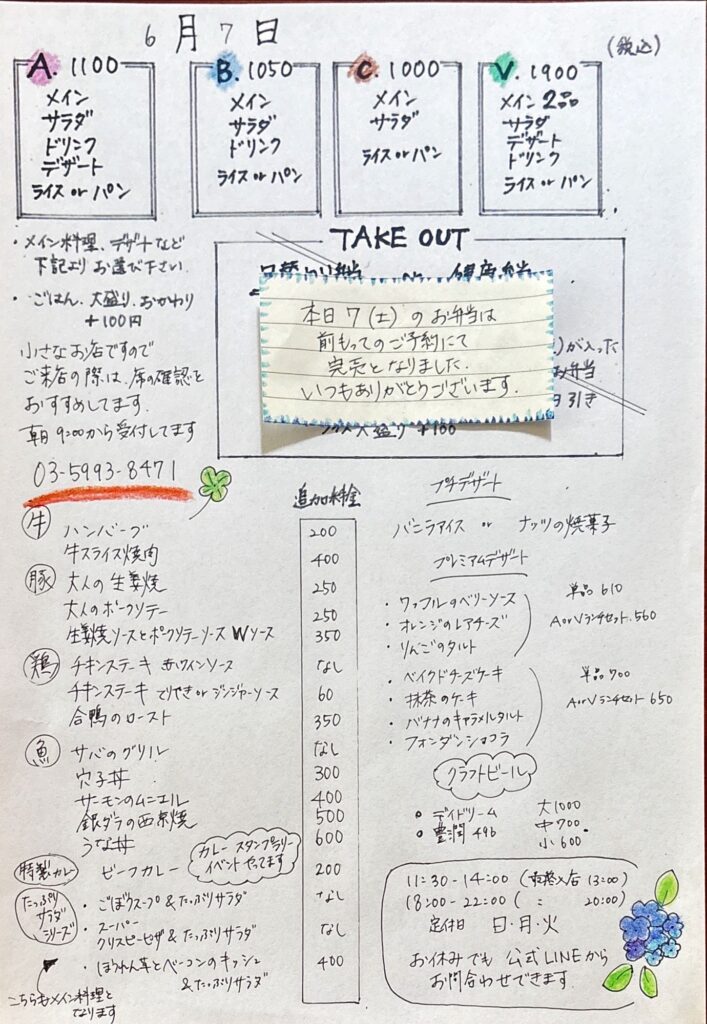 6月7日
(税込)
A. 1100
メイン
サラダ
ドリンク
デザート
ライス or パン
B. 1050
メイン
サラダ
ドリンク
ライス or パン
C. 1000
メイン
サラダ
ライス or パン
V. 1900
メイン 2品
サラダ
デザート
ドリンク
ライス or パン
・メイン料理、デザートなど
下記よりお選び下さい
・ごはん、大盛り、おかわり
+100円
小さなお店ですので
ご来店の際は、席の確認を
おすすめしてます。
朝 9:00から受付してます
03-5993-8471
TAKE OUT
本日7(土)のお弁当は
前もってのご予約にて
完売となりました.
いつもありがとうございます.
が入った
お弁当
引き
大盛り +100
追加料金
牛
ハンバーグ 200
牛スライス焼肉 400
豚
大人の生姜焼 250
大人のポークソテー 250
生姜焼ソースとポークソテーソース Wソース 350
鶏
チキンステーキ 赤ワインソース なし
チキンステーキ てりやき or ジンジャーソース 60
合鴨のロースト 350
魚
サバのグリル なし
穴子丼 300
サーモンのムニエル 400
銀ダラの西京焼 500
うな丼 600
カレー スタンプラリー
イベントやってます
特製カレー
ビーフカレー 200
たっぷり
サラダ
シリーズ
・ごぼうスープ&たっぷりサラダ なし
・スーパー
クリスピーピザ&たっぷりサラダ なし
・ほうれん草とベーコンのキッシュ 400
&たっぷりサラダ
こちらもメイン料理と
なります
プチデザート
バニラアイス or ナッツの焼菓子
プレミアムデザート
・ワッフルのベリーソース
・オレンジのレアチーズ
・りんごのタルト
単品 610
AorVランチセット 560
・ベイクドチーズケーキ
・抹茶のケーキ
・バナナのキャラメルタルト
・フォンダンショコラ
単品 700
AorVランチセット 650
クラフトビール
デイドリーム
豊潤 496
大1000
中700
小600
11:30-14:00 (最終入店 13:00)
18:00-22:00 ( 〃 20:00)
定休日 日・月・火
お休みでも 公式LINEから
お問合わせできます.